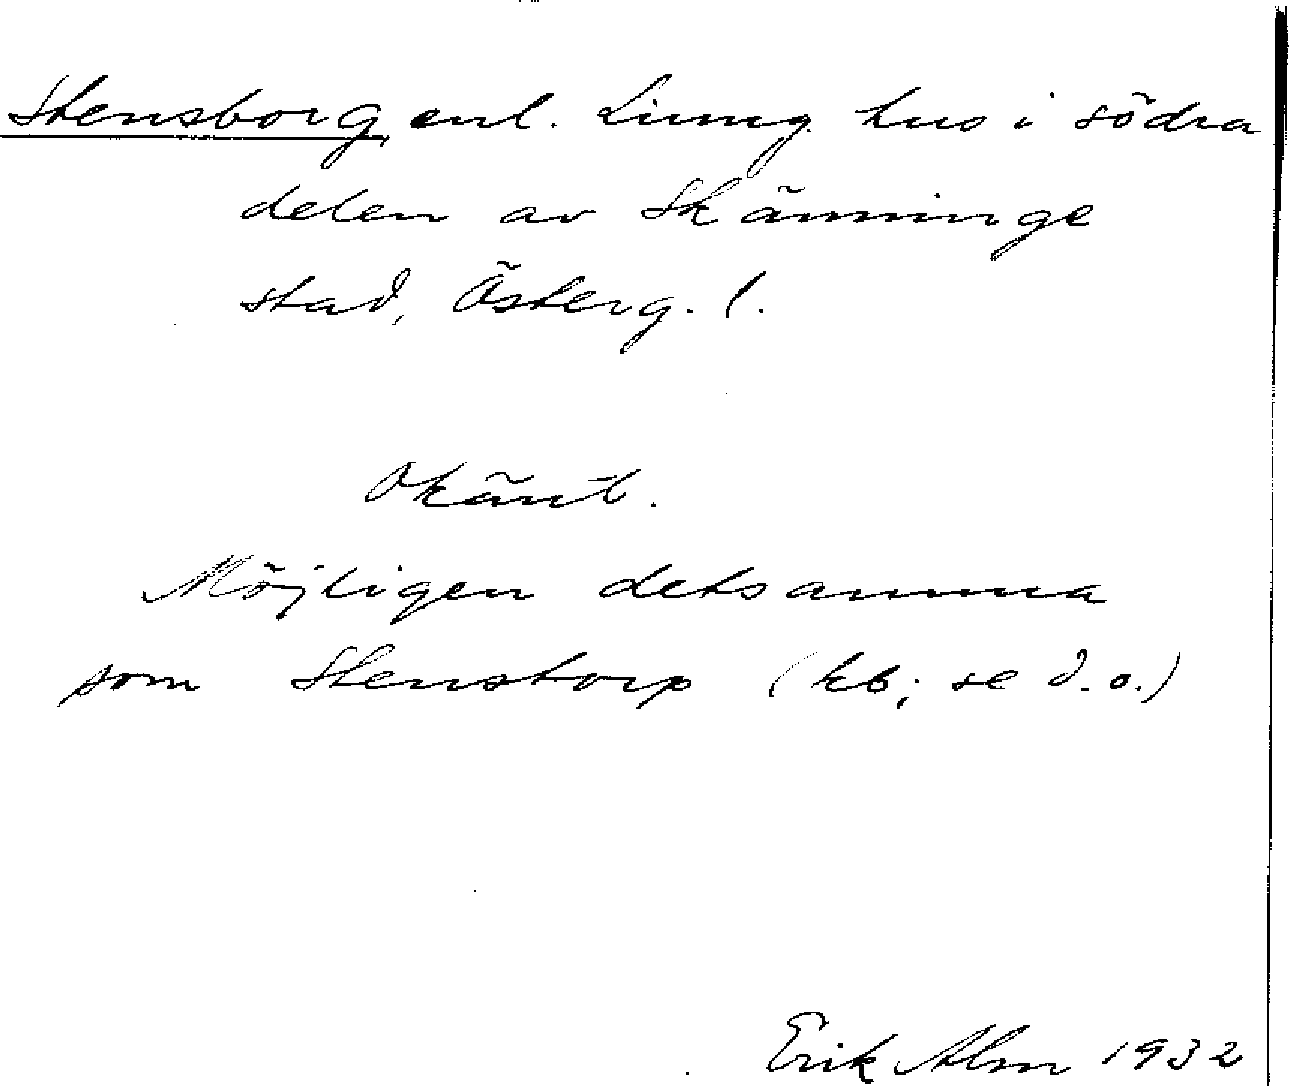 Stensborg, enl. Ljung. hus i södra
delen av Skänninge
stad, Österg. l.
Okänt.
Möjligen detsamma
som Stenstorp (kb; se d.o.)
Erik Alm 1932